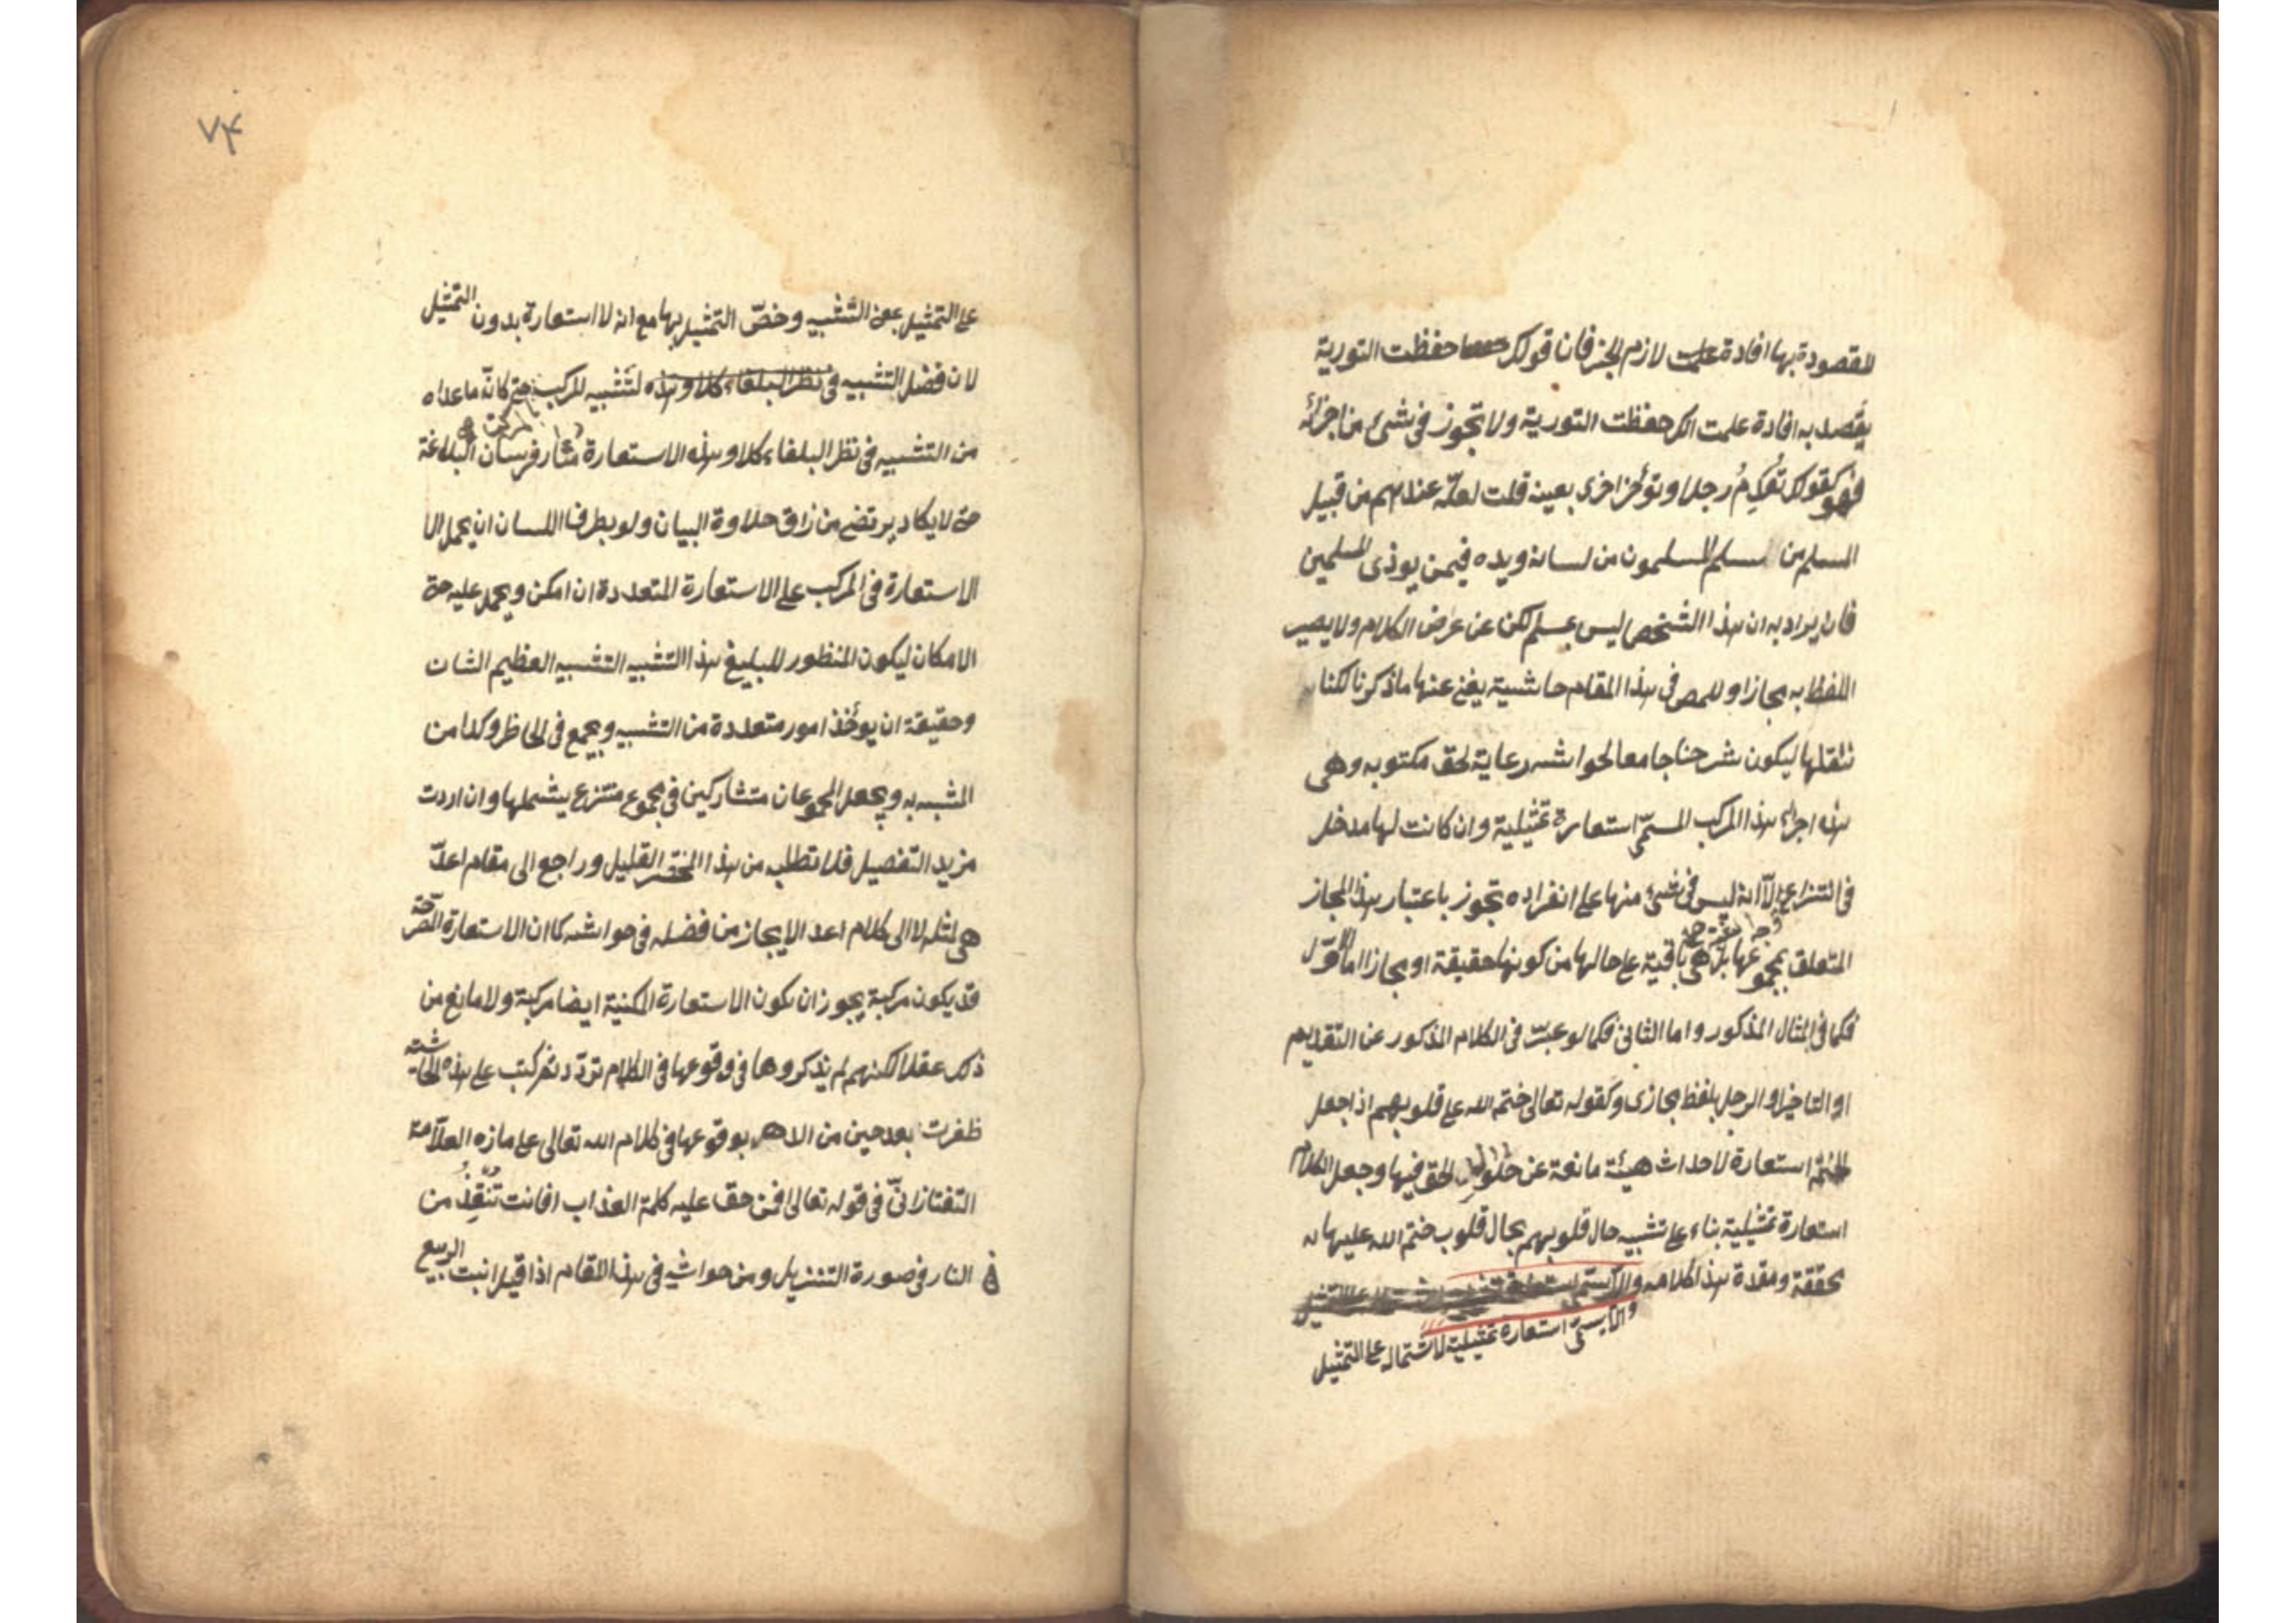 المقصودة بها افادة علمت لازم الخبر فان قولك حفظت التورية
يقصد به افادة علمت انك حفظت التورية ولا تجوز في شئ من اجزائه
فهو كقولك تقدم رجلا وتؤخر اخرى بعينه قلت لعله عندهم من قبيل
المسلم من سلم المسلمون من لسانه ويده فيمن يوذى المسلمين
فان يراد به ان هذا الشخص ليس بمسلم لكن عن عرض الكلام ولا يصير
اللفظ به مجازا وللمص في هذا المقام حاشية يغني عنها ما ذكرنا لكنا
ننقلها ليكون شرحنا جامعا لحواشيه رعاية لحق مكتوبه وهي
هذه اجزاء هذا المركب المسمى استعارة تمثيلية وان كانت لها مدخل
في انتزاع الا انه ليس في شئ منها على انفراده تجوز باعتبار هذا المجاز
المتعلق بمجموعها بل هي باقية على حالها من كونها حقيقة او مجازا اما الاول
فكما في المثال المذكور واما الثاني فكما لو عبرت في الكلام المذكور عن التقديم
او التاخير او الرجل بلفظ مجازى وكقوله تعالى ختم الله على قلوبهم اذا جعل
الختم استعارة لاحداث هيئة مانعة عن حلول الحق فيها وجعل الكلام
استعارة تمثيلية بناء على تشبيه حال قلوبهم بحال قلوب ختم الله عليها
محققة ومقدرة هذا كلامه
والا يسمى استعارة تمثيلية لاشتماله على التمثيل
٧۴
على التمثيل بمعنى التشبيه وخص التمثيل بها مع انه لا استعارة بدون التمثيل
لان فضل التشبيه في نظر البلغاء كلا وهذه لتشبيه المركب بالمركب حتى كانه ما عداه
من التشبيه في نظر البلغاء كلا وهذه الاستعارة مثار فرسان البلاغة
حتى لا يكاد يرتضى من ذاق حلاوة البيان ولو بطرف اللسان ان يحمل الا
الاستعارة في المركب على الاستعارة المتعددة ان امكن ويحمل عليه حتى
الامكان ليكون المنظور للبليغ هذا التشبيه التشبيه العظيم الشان
وحقيقة ان يوخذ امور متعددة من التشبيه ويجمع في الخاطر وكذا من
المشبه به ويجعل المجموعان متشاركين في مجموع منتزع يشملها وان اردت
مزيد التفصيل فلا تطلب من هذا المختصر القليل وراجع الى مقام اعد
هي لمثله لا الى كلام اعد الايجاز من فضله في حواشيه كما ان الاستعارة المصرحة
قد يكون مركبة يجوز ان يكون الاستعارة المكنية ايضا مركبة ولا مانع من
ذلك عقلا لكنهم لم يذكروها في وقوعها في الكلام تردد ثم كتب على هذه الحاشية
ظفرت بعد حين من الدهر بوقوعها في كلام الله تعالى على ما زه العلامة
التفتازاني في قوله تعالى افمن حق عليه كلمة العذاب افانت تنقذ من
في النار في صورة التنزيل ومن حواشيه في هذا المقام اذا قيل انبت الربيع